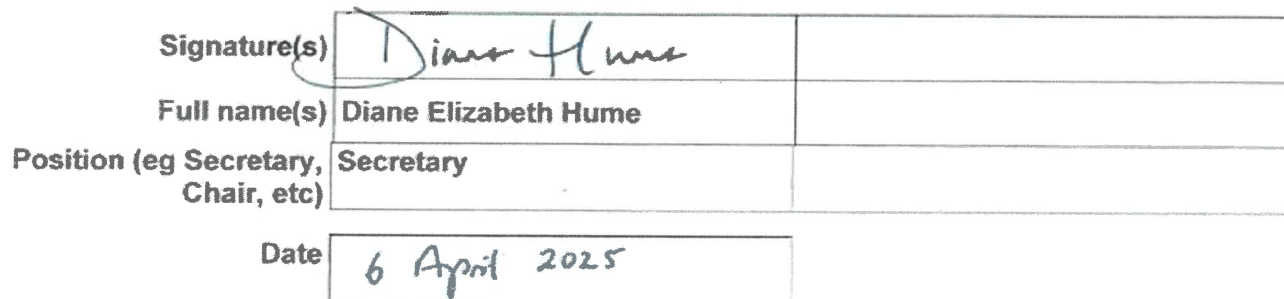 Signature(s) Diane Hume
Full name(s) Diane Elizabeth Hume
Position (eg Secretary, Secretary
Chair, etc)
Date 6 April 2025